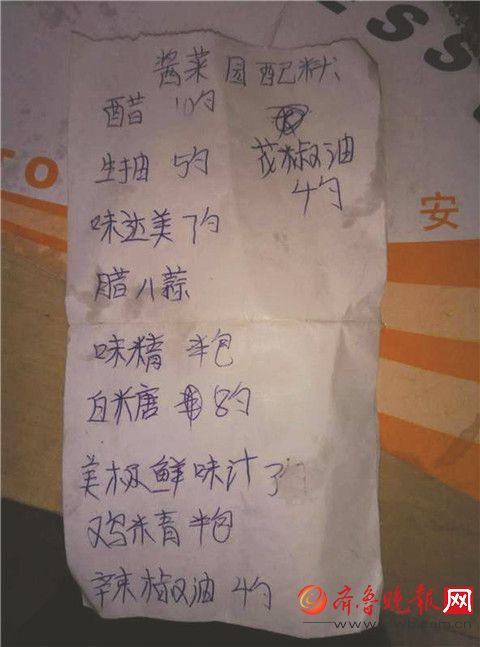 酱菜园配料
醋 10勺
生抽 5勺
花椒油
4勺
味达美 7勺
腊八蒜
味精 半包
白米唐 8勺
美极鲜味汁 了
鸡米青 半包
辣椒油 4勺
安
TO
ESS
齐鲁晚报网